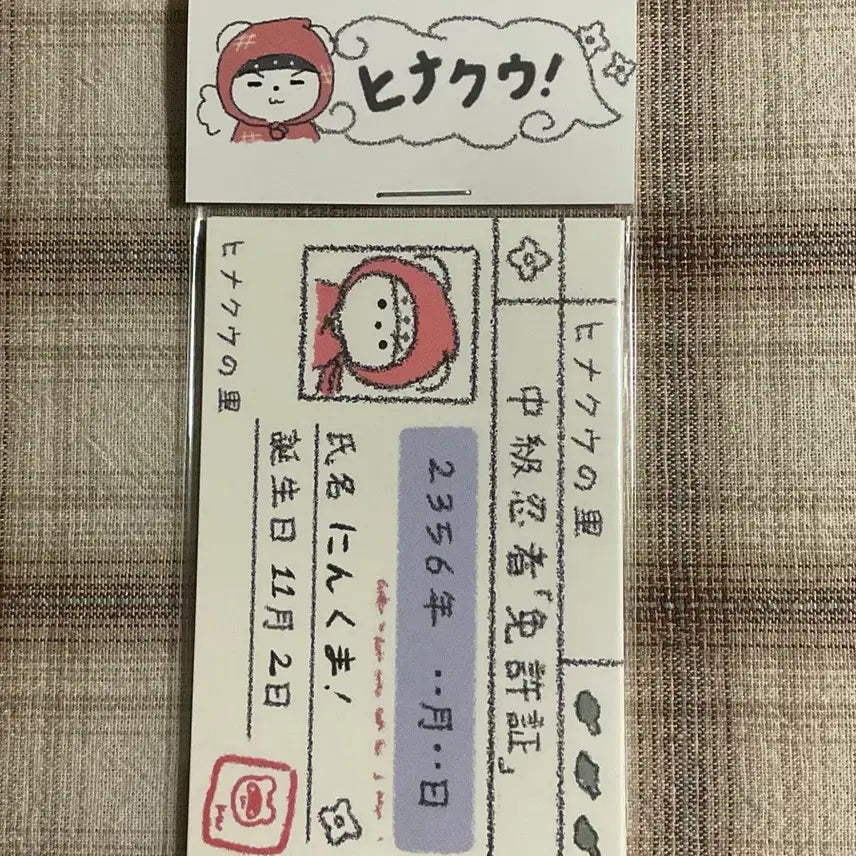 ヒナクウ!
ヒナクウの里
中級忍者「免許証」
2356年 ‥月‥日
氏名 にんくま!
誕生日 11月2日
ヒナクウの里